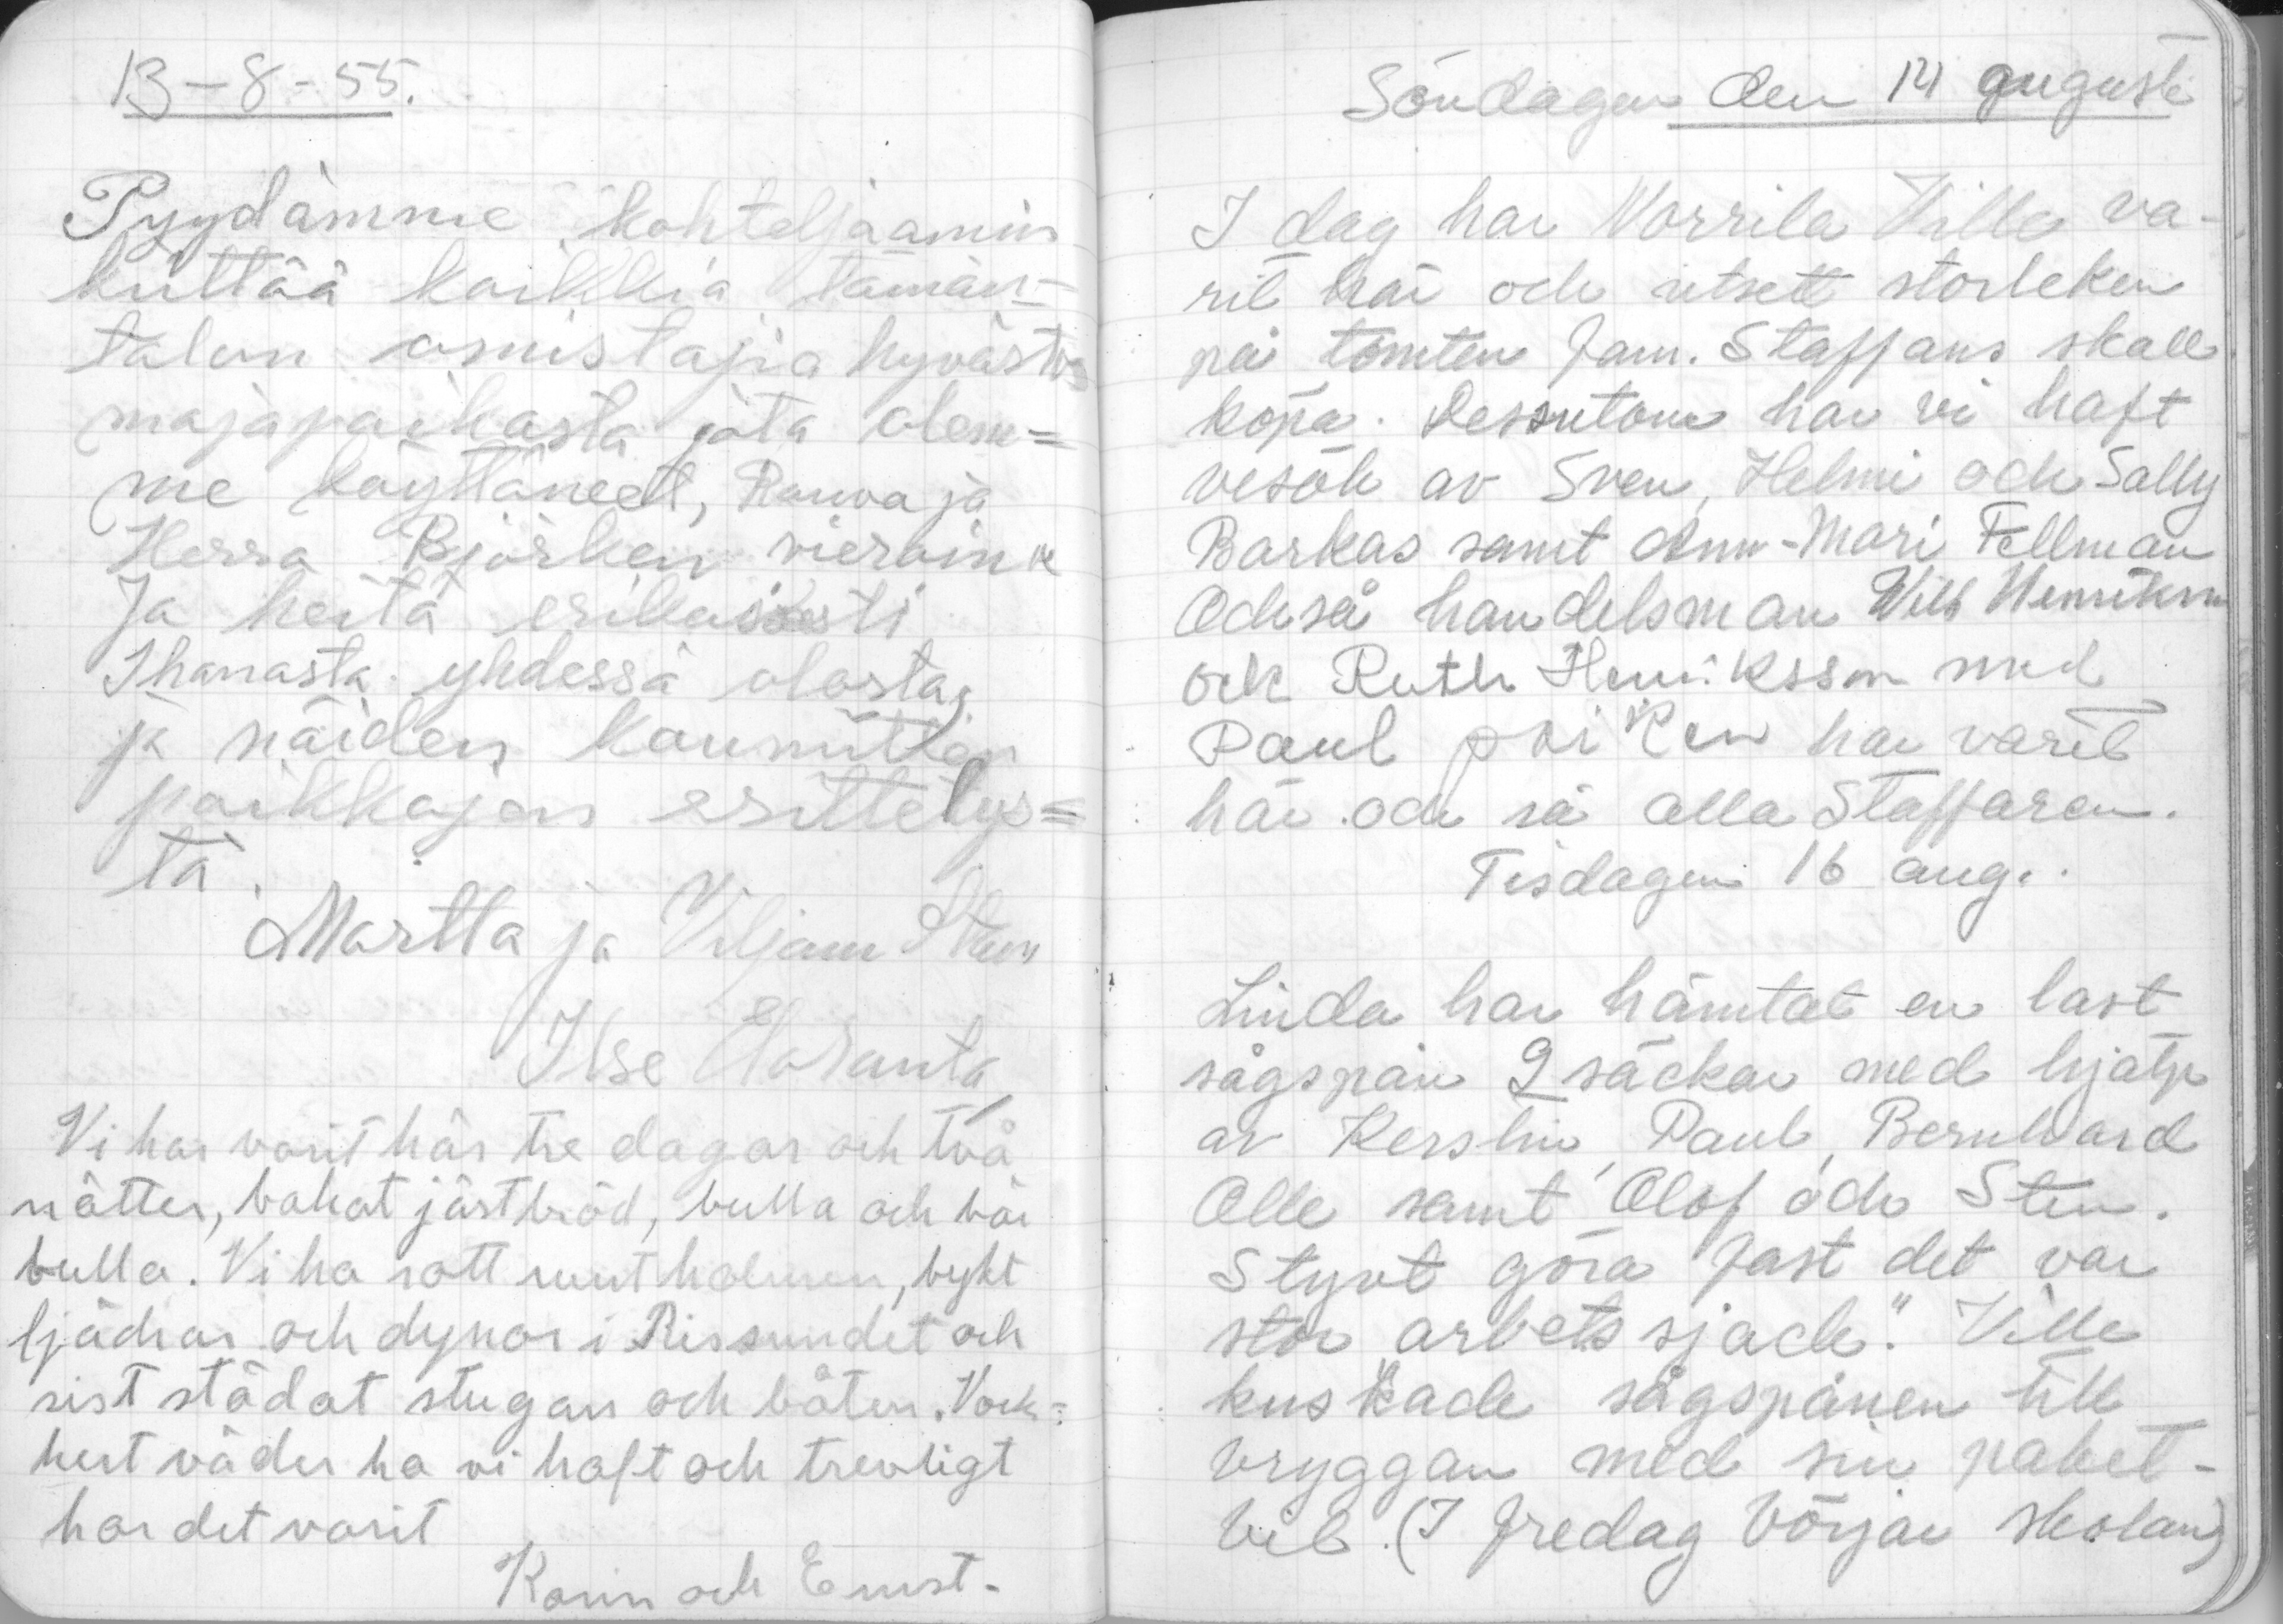 13-8-55.
Pyydämme kohteljaamin
kiittää kaikkia tämän-
talon omistajia hyvästä
majapaikasta jota olem=
me käyttäneet, Rouva ja
Herra Björken vieraina
Ja heitä erikoisesti
Ihanasta yhdessä olosta,
ja näiden kauniitten
paikkojen esittelys=
tä.
Martta ja Viljam
Ilse
Vi har varit här tre dagar och två
nätter, bakat jästbröd, bulla och bär
bulla. Vi ha rott runt holmen, bykt
fjädrar och dynor i Rissundet och
sist städat stugan och båten. Vack=
hert väder ha vi haft och trevligt
har det varit
Karin och Ernst.
Söndagen den 14 augusti
I dag har Norrila Ville va-
rit här och utsett storleken
på tomten fam. Staffans skall
köpa. Dessutom har vi haft
besök av Sven, Helmi och Sally
Backas samt Ann-Mari Fellman
Också handelsman Will Henriksson
och Ruth Henriksson med
Paul poiken har varit
här och så alla Staffaren.
Tisdagen 16 aug..
Linda har hämtat en last
sågspån 9 säckar med hjälp
av Kerstin, Paul, Bernhard
Olle samt Olof och Sten.
Styvt göra fast det var
stor "arbetssjack". Ville
kuskade sågspånen till
bryggan med sin paket-
bil. (I fredag börjar skolan)